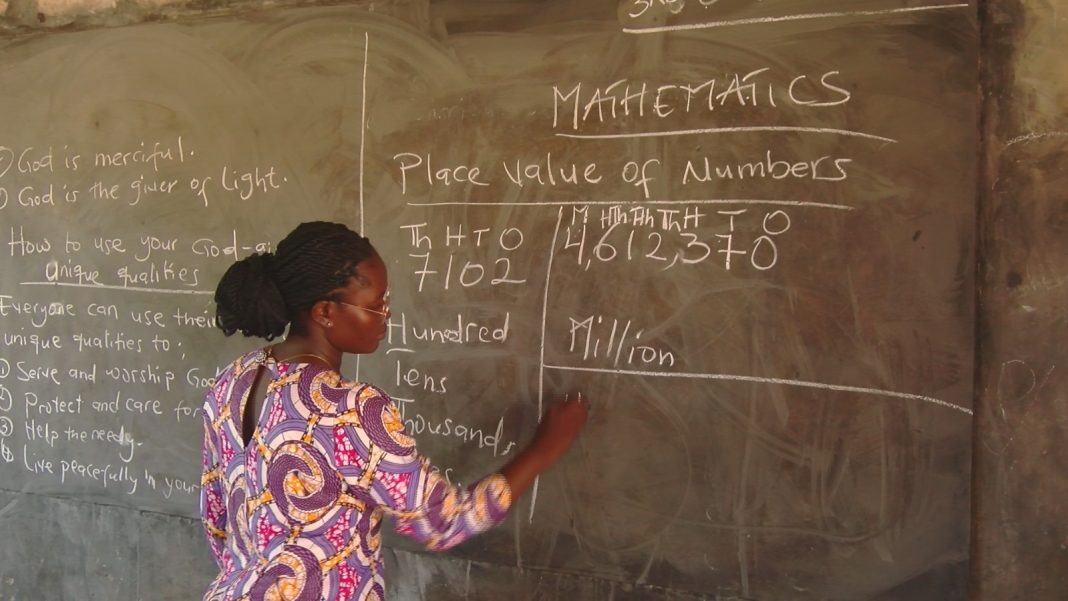 God is merciful.
God is the giver of light.
How to use your God-
unique qualities
Everyone can use their
unique qualities to;
① Serve and worship
② Protect and care for
③ Help the needy.
Live peacefully in your
MATHEMATICS
Place Value of Numbers
Th H T O
7102
Hundred
Tens
Thousands
M HTh TTh Th H T O
4,612,370
Million